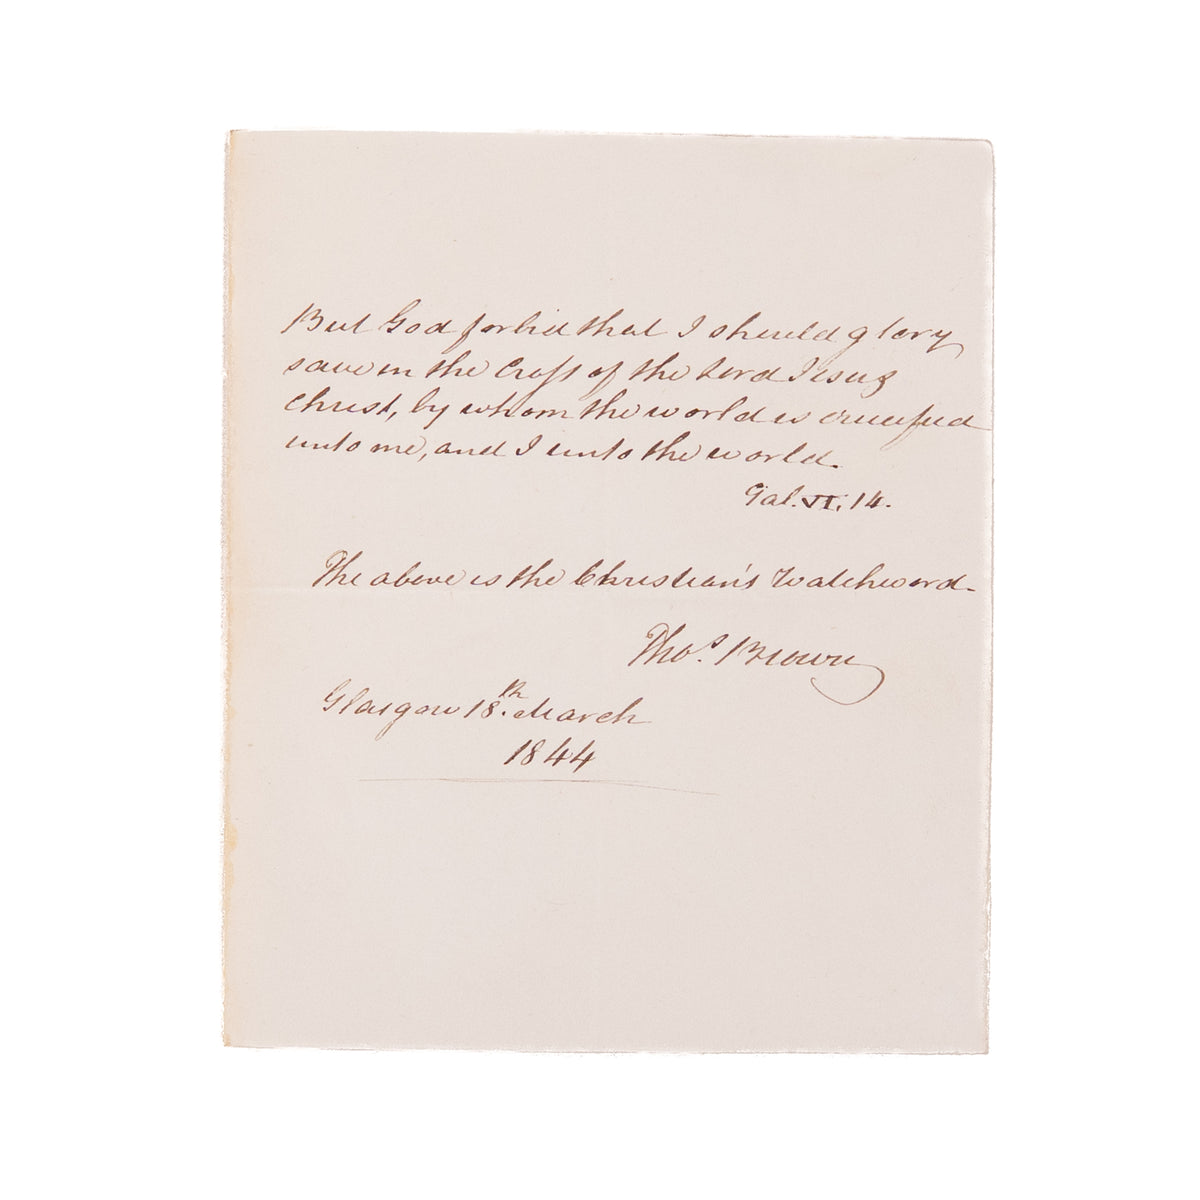 But God forbid that I should glory
save in the Cross of the Lord Jesus
Christ, by whom the world is crucified
unto me, and I unto the world.
Gal. VI. 14.
The above is the Christian's Watchword.
Thos. Brown
Glasgow 18th. March
1844